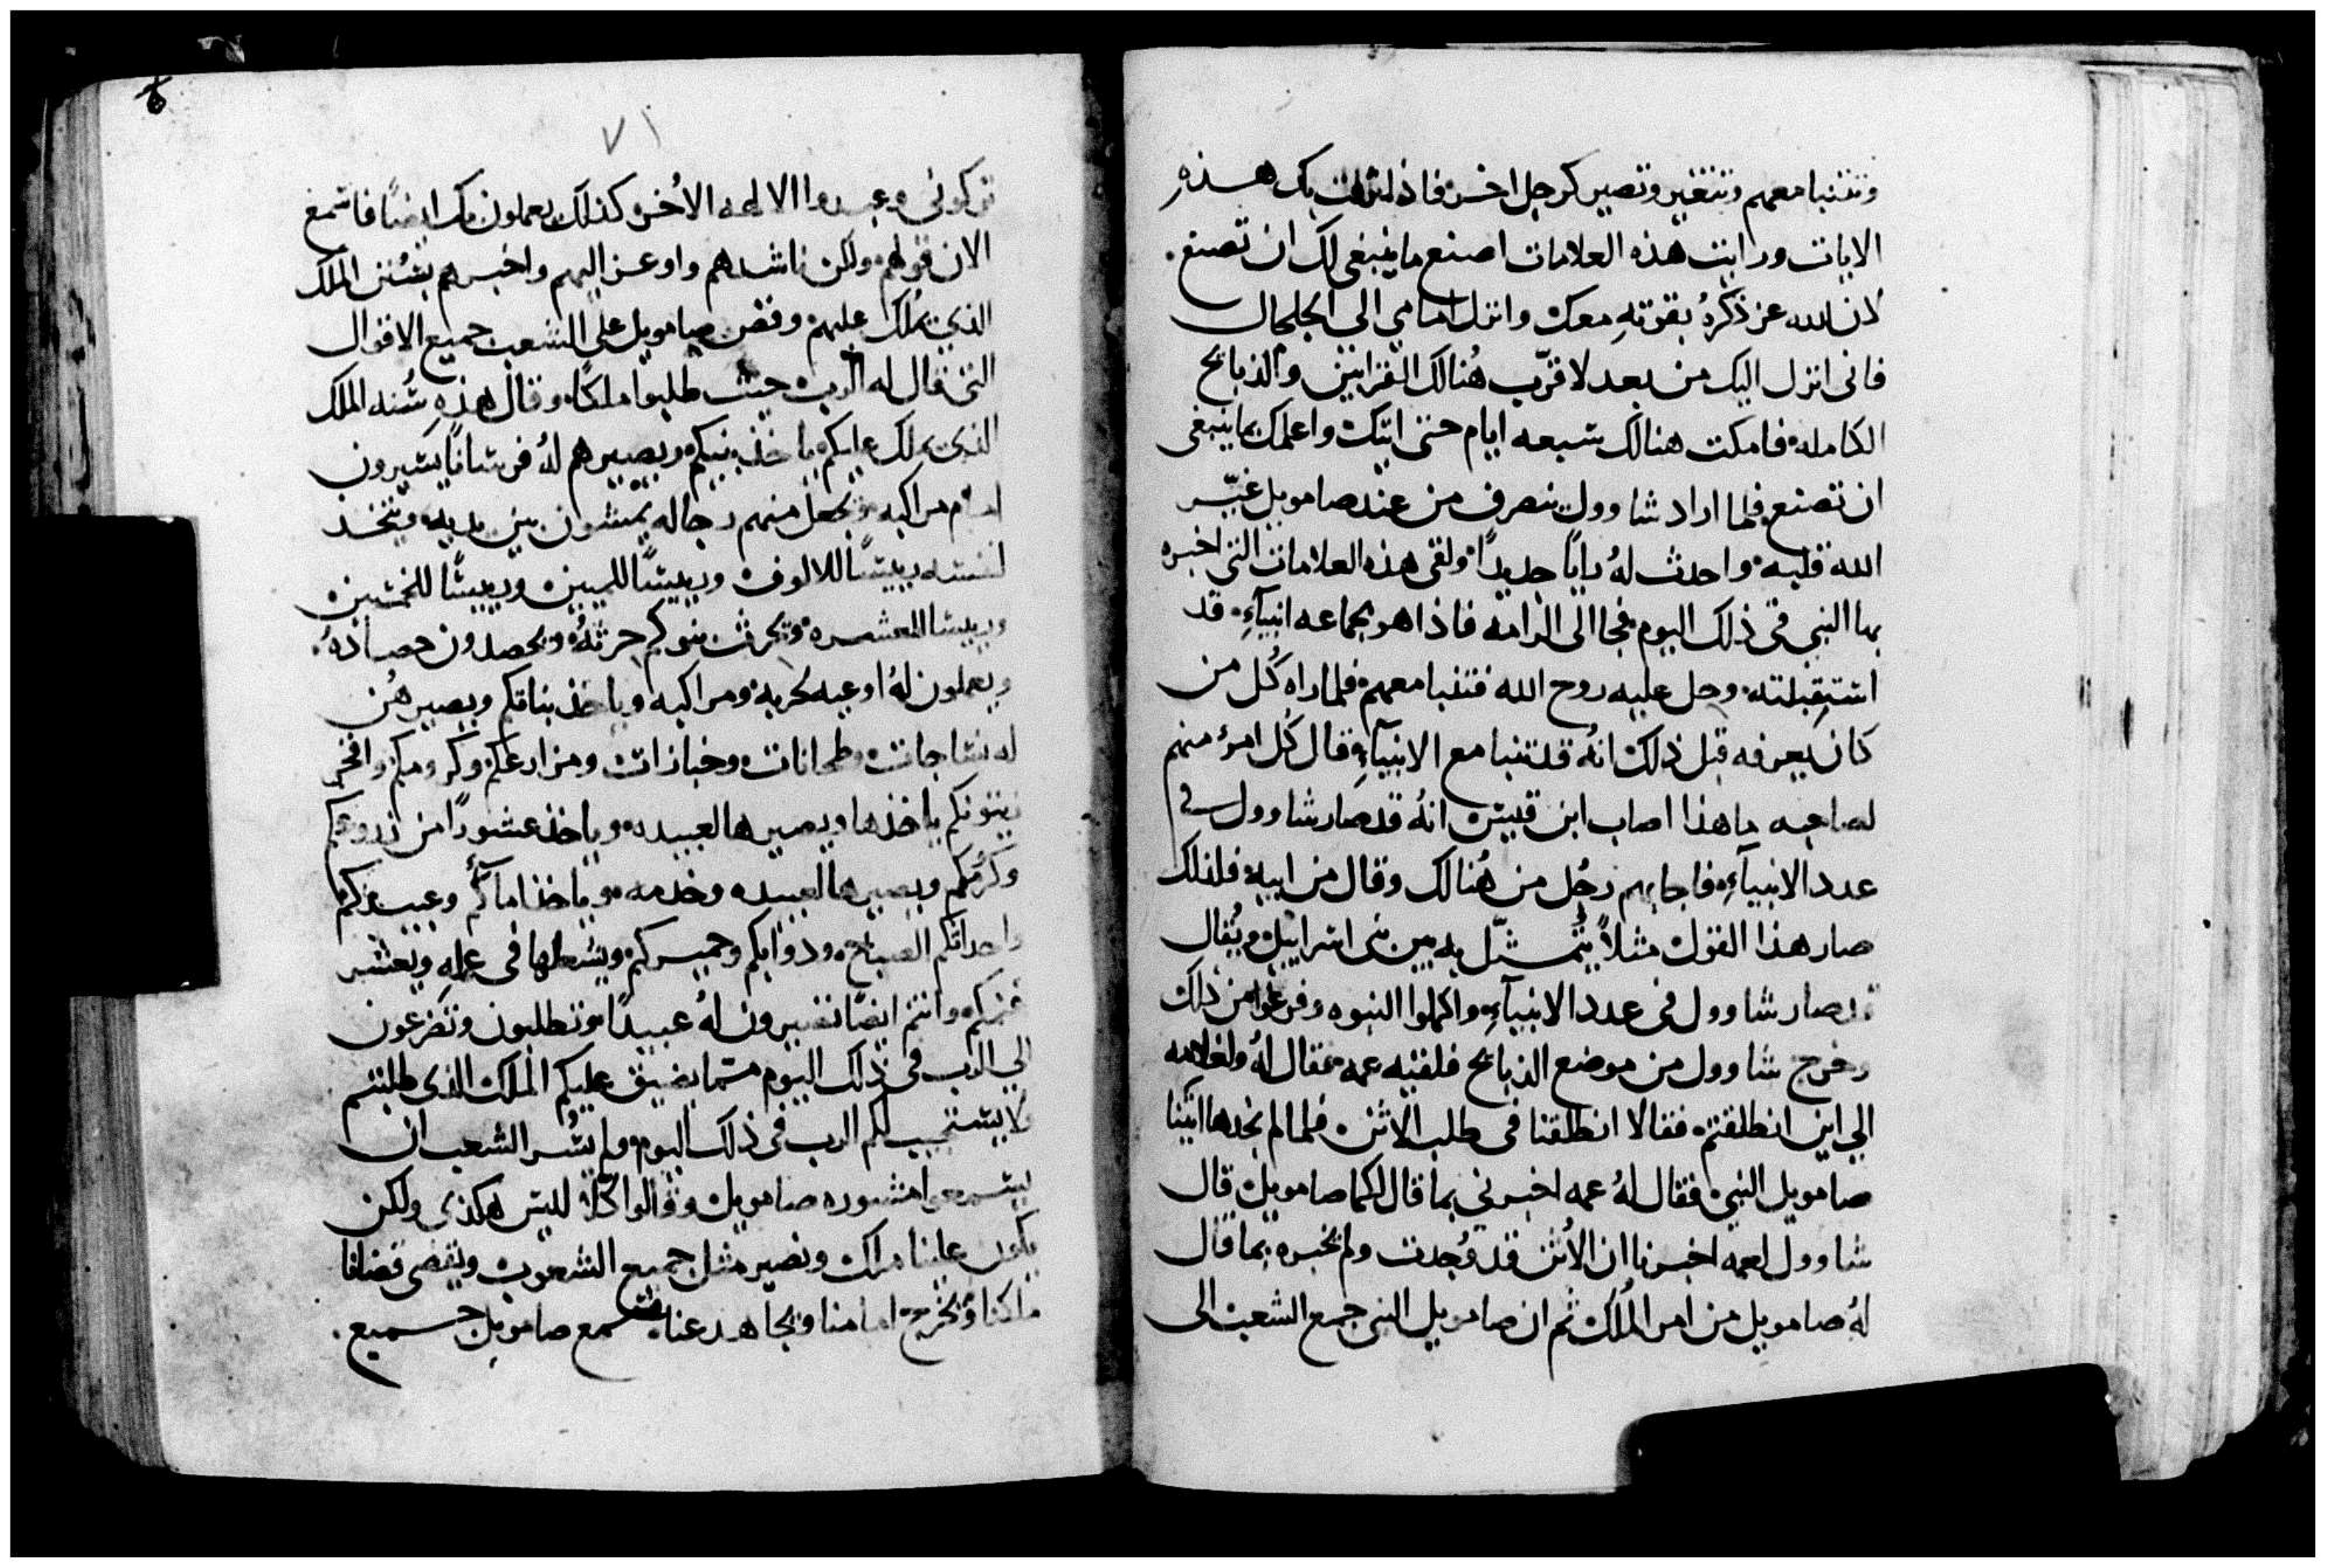 وتتنبا معهم وتتغير وتصير كرجل اخر فاذا نزلت بك هذه
الايات ورايت هذه العلامات اصنع ما ينبغى لك ان تصنع.
لان الله عز ذكرهُ بقوتهِ معك وانزل امامي الي الجلجال
فانى انزل اليك من بعد لاقرّب هُنالك القرابين والذبايح
الكامله فامكث هنالك سبعه ايام حتى اتيك واعلمك بما ينبغى
ان تصنع فلما اراد شاوول ينصرف من عند صامويل غيّر
الله قلبه واحدث لهُ رايًا جديدًا ولقى هذه العلامات التى اخبره
بها النبى فى ذلك اليوم فجا الى الرامه فاذا هو بجماعه انبيآءِ قد
استقبلته وحل عليه روح الله فتنبا معهم فلما راه كُل من
كان يعرفه قبل ذلك انهُ قد تنبا مع الانبيآءِ قال كُل امرؤ منهم
لصاحبه ما هذا اصاب ابن قيس انهُ قد صار شاوول فى
عدد الانبيآءِ فاجابهم رجُل من هُنالك وقال من ابيه فلذلك
صار هذا القول مثلاً يُتمثّل به بين بنى اسراييل ويُقال
قد صار شاوول فى عدد الانبيآءِ واكملوا النبوه وفرغوا من ذلك
وخرج شاوول من موضع الذبايح فلقيه عمه فقال لهُ ولغلامه
الي اين انطلقتم فقالا انطلقنا فى طلب الاتن فلما لم نجدها اتينا
صامويل النبى فقال لهُ عمه اخبرني بما قال لكما صامويل قال
شاوول لعمه اخبرنا ان الاُتن قد وُجدت ولم يخبره بما قال
لهُ صامويل من امر المُلك ثم ان صامويل النبى جمع الشعب الى
٧١
تركونى وعبدوا الالهه الاُخر كذلك يعملون بك ايضًا فاسمع
الان قولهم ولكن ناشدهم واوعز اليهم واخبرهم بسُنن الملك
الذي يملك عليهم وقص صامويل على الشعب جميع الاقوال
التى قال له الرب حيث طلبوا ملكًا وقال هذهِ سُنه الملك
الذى يملك عليكم ياخذ بنيكم ويصيرهم لهُ فرسانًا يسيرون
امام مراكبه ويجعل منهم رجاله يمشون بين يديه ويتخذ
لنفسه رييسًا للالوف ورييسًا للميين ورييسًا للخمسين
ورييسا للعشره ويحرث بنوكم حرثهُ ويحصدون حصادهُ.
ويعملون لهُ اوعيه لحربه ومراكبه وياخذ بناتكم ويصيرهُن
له نساجات وطحانات وخبازات ومزارعكم وكرومكم وافخر
زيتونكم ياخذها ويصيرها لعبيده وياخذ عشورًا من زروعكم
وكرُمكم ويصيرها لعبيده وخدمه وياخذ اماكُم وعبيدكم
واحداثكم الصباح ودوابكم وحميركم ويستعملها فى عمله ويعشر
غنمكم وانتم ايضًا تصيرون لهُ عبيدًا وتطلبون وتضرعون
الي الرب فى ذلك اليوم مما يضيق عليكم الملك الذى طلبتم
لا يستجيب لكم الرب فى ذلك اليوم ولم يسُر الشعب ان
يسمعوا مشوره صامويل وقالوا كلاّ ليس هكذى ولكن
يكون علينا ملك ونصير مثل جميع الشعوب ويقضى قضانا
ملكنا ويخرج امامنا ويجاهد عنا فسمع صامويل جميع.